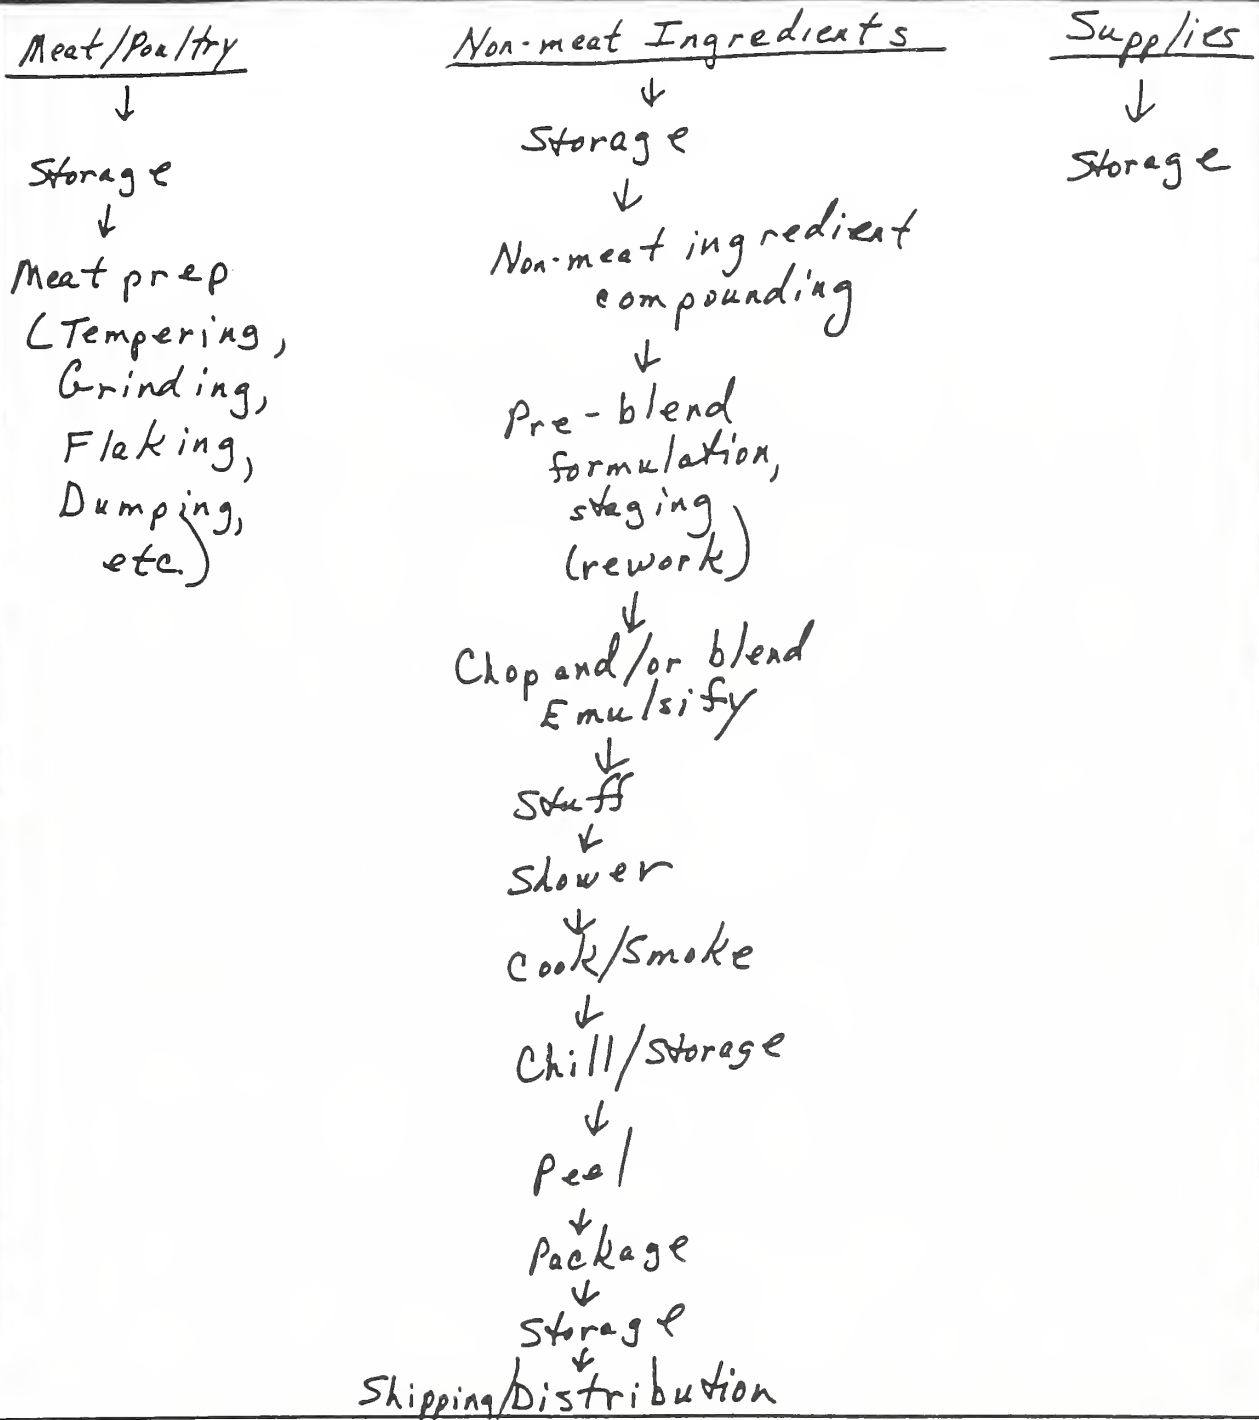 Meat/Poultry
↓
Storage
↓
Meat prep
(Tempering,
Grinding,
Flaking,
Dumping,
etc.)
Non-meat Ingredients
↓
Storage
↓
Non-meat ingredient
compounding
↓
Pre-blend
formulation,
staging
(rework)
↓
Chop and/or blend
Emulsify
↓
Stuff
↓
Shower
↓
Cook/Smoke
↓
Chill/Storage
↓
Peel
↓
Package
↓
Storage
↓
Shipping/Distribution
Supplies
↓
Storage